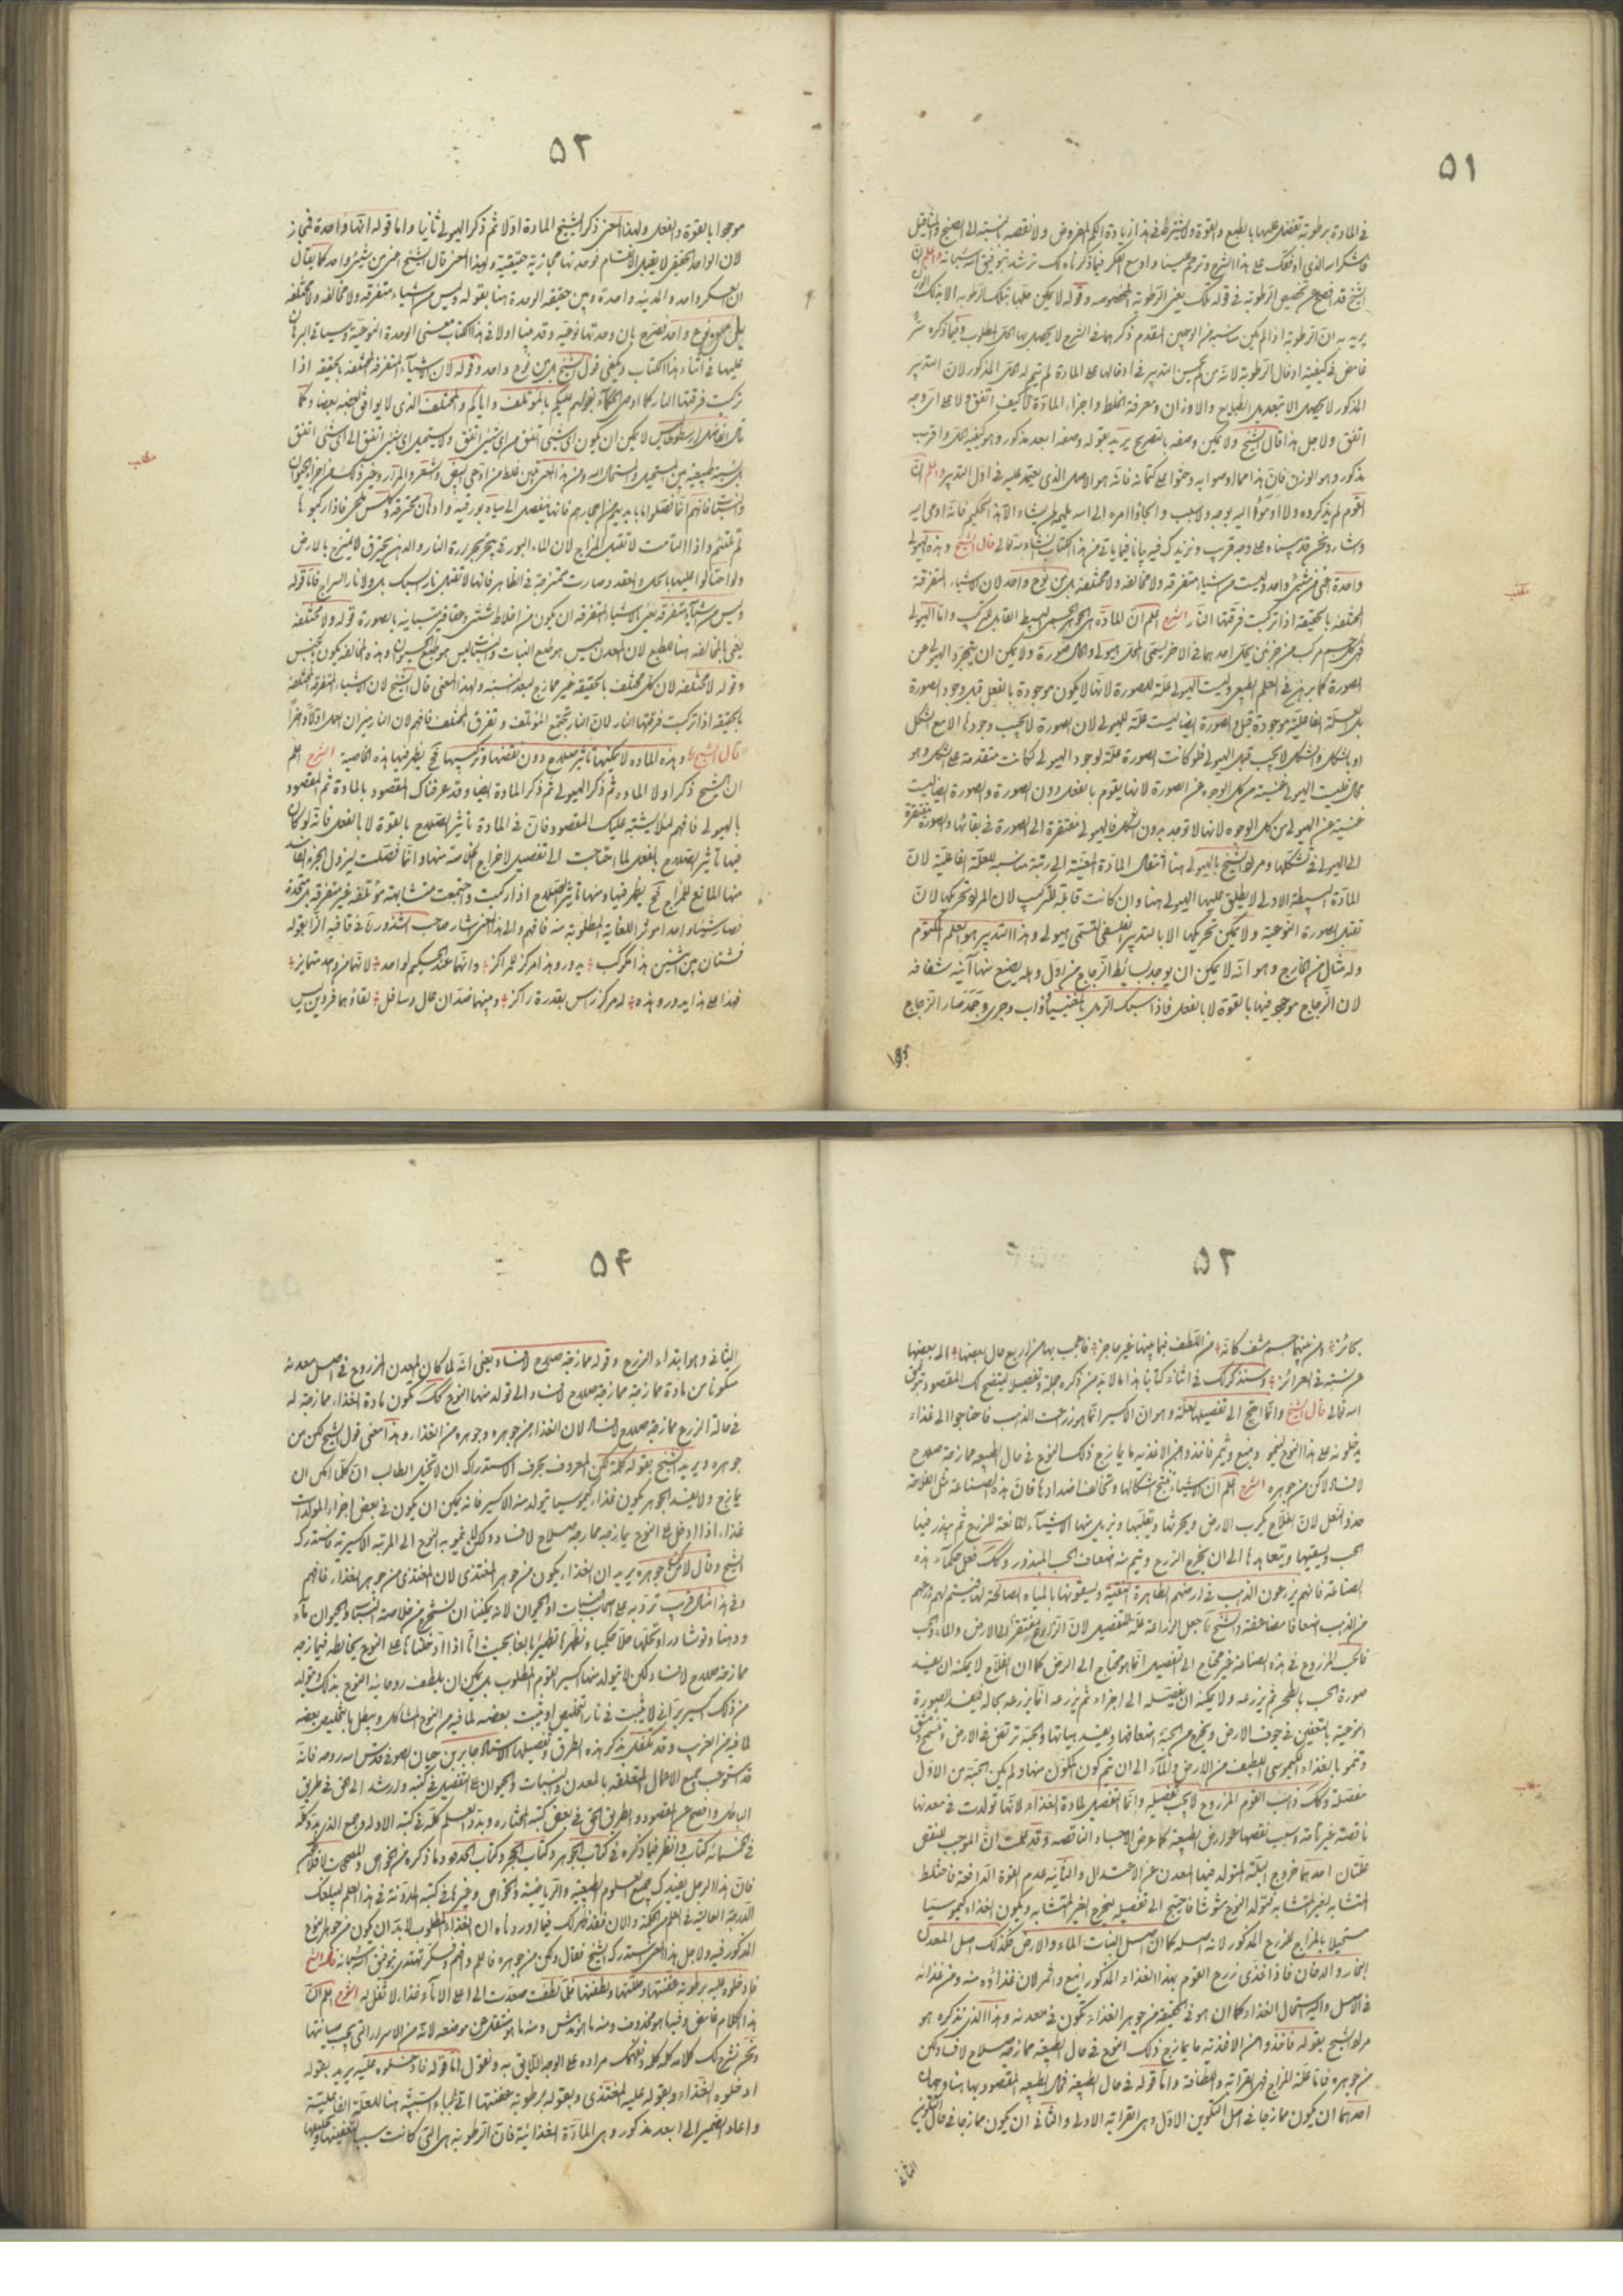 ٥١
في المادة برطوبة تفضل عليها بالطبع والقوة ولا يشترط في هذا زيادة الكم المفروض ولا نقصه بالنسبة الى
فاشكر الله الذي اوقفك على هذا الشرح وترحم علينا واوسع الفكر فيما ذكرناه لك ترشد بتوفيق الله سبحانه واعلم ان
الشيخ قد افصح عن تخصيص الرطوبة في قوله تلك يعني الرطوبة المخصوصة وقوله لا يمكن حلها بتلك الرطوبة الا بذلك
يريد به ان الرطوبة اذا لم يكن مناسبة من الوجهين المتقدم ذكرهما في الشرح لا يحصل بها الحل المطلوب وفيما ذكره
المذكور لا يحصل الا بتعديل الطبايع والاوزان ومعرفة الخلط واجزاء المادة لا كيف اتفق ولا على اي وجه
اتفق ولاجل هذا قال الشيخ ولا يمكن وصفه بالتصريح يريد بقوله وصفه ابعد مذكور وهو كيفية الحل واقرب
مذكور وهو الوزن فان هذا مما اوصوا به وحثوا على كتمانه فانه هو الاصل الذي يعتمد عليه في اول التدبير واعلم ان
القوم لم يذكروه ولا اومؤا اليه بوجه ولا سبب والجاؤا امره الى الله يلهمه لمن يشاء الا هذا الحكيم فانه اومى اليه
واشار ونحن قد بيناه على وجه قريب ونزيدك فيه بيانا فيما ياتي من هذا الكتاب ان شاء الله تعالى قال الشيخ وهذه الهيولى
واحدة اعني من شيئ واحد وليست من اشياء متفرقة ولا مخالفة ولا مختلفة بل من نوع واحد لان الاشياء المتفرقة
المختلفة بالحقيقة اذا تركبت فرقتها النار الشرح اعلم ان المادة هي الجوهر البسيط القابل للتركيب واما الهيولى
فهي جسم مركب من جزئين يحل احدهما في الاخر يسمى المحل هيولى والحال صورة ولا يمكن ان يتجرد الهيولى عن
الصورة كما برهن في العلم الطبيعي وليست الهيولى علة للصورة لانها لا يكون موجودة بالفعل قبل وجود الصورة
بل العلة الفاعلية موجودة قبل والصورة ايضا ليست علة للهيولى لان الصورة لا يجب وجودها الا مع الشكل
او بالشكل والشكل لا يجب قبل الهيولى فلو كانت الصورة علة لوجود الهيولى لكانت متقدمة على الشكل وهو
محال فليست الهيولى غنية من كل الوجوه عن الصورة لانها يقوم بالفعل دون الصورة والصورة ايضا ليست
غنية عن الهيولى من كل الوجوه لانها لا توجد بدون الشكل فالهيولى مفتقرة الى الصورة في بقائها والصورة مفتقرة
الى الهيولى في تشكلها ومراد الشيخ بالهيولى هنا انتقال المادة المعينة الى رتبة مناسبة للعلة الفاعلية لان
المادة البسيطة الاولى لا يطلق عليها الهيولى هنا وان كانت قابلة للتركيب لان المراد تحريكها لان
تقبل الصورة النوعية ولا يمكن تحريكها الا بالتدبير الفلسفي لتسمى هيولى وهذا التدبير هو العلم المكتوم
وله مثال من الخارج وهو انه لا يمكن ان يوجد بسائط الزجاج من اول وهلة يصنع منها آنية شفافة
لان الزجاج موجود فيها بالقوة لا بالفعل فاذا سبك الرمل بالمغنيسيا وذاب وجرى وجمد صار الزجاج
٥٢
موجودا بالقوة والفعل ولهذا المعنى ذكر الشيخ المادة اولا ثم ذكر الهيولى ثانيا واما قوله انها واحدة فمجاز
لان الواحد الحقيقي لا يقبل الانقسام فوحدتها مجازية حقيقية ولهذا المعنى قال الشيخ اعني من شيئ واحد كما يقال
ان العسكر واحد والمدينة واحدة وبين حقيقة الوحدة هنا بقوله وليس من اشياء متفرقة ولا مخالفة ولا مختلفة
بل من نوع واحد فصرح بان وحدتها نوعية وقد بينا اولا في هذا الكتاب معنى الوحدة النوعية وسياتي البرهان
عليها في اثناء هذا الكتاب ويكفي قول الشيخ بل من نوع واحد وقوله لان الاشياء المتفرقة المختلفة بالحقيقة اذا
تركبت فرقتها النار كما اوصى الحكماء بقولهم عليكم بالموتلف واياكم والمختلف الذي لا يوافق بعضه بعضا وكما
قال الفاضل ارسطوطاليس لا يمكن ان يكون اي شيئ اتفق من اي شيئ اتفق ولا يستحيل اي شيئ اتفق الى اي شيئ اتفق
ثم تلتئم واذا التأمت لا تقبل المزاج لان الماء البورقي يتبخر بحرارة النار والدهن يحترق لا يمتزج بالارض
ولو احتالوا عليها بالحل والعقد وصارت ممتزجة في الظاهر فانها لا تقبل نار السبك بل ولا نار السراج فاما قوله
وليس من اشياء متفرقة يعني بالاشياء المتفرقة ان يكون من اخلاط شتى وعقاقير متباينة بالصورة قوله ولا مختلفة
يعني بالمخالفة هنا الطبع لان المعدن ليس هو طبع النبات والنبات ليس هو طبع الحيوان وهذه المخالفة يكون بالجنس
وقوله لا مختلفة لان كل مختلف بالحقيقة غير ممازج لبعد نسبته ولهذا المعنى قال الشيخ لان الاشياء المتفرقة المختلفة
بالحقيقة اذا تركبت فرقتها النار لان النار تجمع الموتلف وتفرق المختلف فافهم لان النار ميزان العدل اولا وآخرا
قال الشيخ وهذه المادة لا يمكنها تاثير الصلاح دون نقضها وتركيبها فح يظهر فيها هذه الخاصية الشرح اعلم
ان الشيخ ذكر اولا المادة ثم ذكر الهيولى ثم ذكر المادة ايضا وقد عرفناك المقصود بالمادة ثم المقصود
بالهيولى فافهم لئلا يشتبه عليك المقصود فان في المادة تاثير الصلاح بالقوة لا بالفعل فانه لو كان
فيها تاثير الصلاح بالفعل لما احتاجت الى تفصيل لاخراج الخلاصة منها وانما فصلت ليزول الجزء الفاسد
منها المانع للمزاج فح يظهر فيها ومنها تاثير الصلاح اذا ركبت واجتمعت متشابهة مؤتلفة غير متفرقة بل متحدة
فصار شيئا واحدا موثرا للغاية المطلوبة منه فافهم والى هذا المعنى اشار صاحب الشذور في قافية الزا بقوله
فشتان بين اثنين هذا مكوكب يدور وهذا مركز للمراكز وانهما عند الحكيم لواحد لانهما من واحد متمايز
فهذا على هذا يدور وهذه له مركز راس بقدرة راكز وبينهما ضدان عال وسافل بقاؤهما فردين ليس
٥٣
بجائز ومن بينهما جسم مشف كانه من اللطف فيما بينها غير حاجز فاعجب بها من اربع حال بعضها الى بعضها
عن نسبة في الغرائز وسنذكر لك في اثناء كتابنا هذا ما لا بد من ذكره جملة وتفصيلا ليتضح لك المقصود بتوفيق
الله تعالى قال الشيخ وانما احتج الى تفصيلها لعلة وهو ان الاكسير انما هو زرعت الذهب فاحتاجوا الى غذاء
يدخلونه على هذا النوع لينمو وينبع ويثمر فاخذوا من الاغذية ما يمازج ذلك النوع في حال الطبيعة ممازجة صلاح
لا فساد لكن من جوهره الشرح اعلم ان الاشياء تنتج اشكالها وتخالف اضدادها فان هذه الصناعة مثل الفلاحة
حذو النعل لان الفلاح يكرب الارض ويحرثها ويقلبها ويزيل منها الاشياء المانعة للزرع ثم يبذر فيها
الحب ويسقيها ويتعاهدها الى ان يخرج الزرع ويتم منه اضعاف الحب المبذور وكذلك فعل حكماء هذه
الصناعة فانهم يزرعون الذهب في ارضهم الطاهرة النقية ويسقونها بالمياه الصالحة لها
فالحب المزروع في هذه الصناعة غير محتاج الى التفصيل انما هو محتاج الى الارض كما ان الفلاح لا يمكنه ان يفسد
صورة الحب بالطحن ثم يزرعه ولا يمكنه ان يفصله الى اجزاء ثم يزرعه انما يزرعه بحاله فيفسد الصورة
وتنمو بالغذاء الكيموسي اللطيف من الارض والماء الى ان تتم كون المتكون منها ولم يكن الحبة من الاول
مفصلة وكذلك ذهب القوم المزروع لا يجب تفصيله وانما التفصيل لمادة الغذاء لانها تولدت في معدنها
ناقصة غير تامة وسبب نقصها عوارض الطبيعة كما عرض للاجساد الناقصة وقد علمت ان الموجب للنقص
علتان احدهما خروج البنية المتولد فيها المعدن عن الاعتدال والثانية عدم القوة الدافعة فاختلط
المتشابه بغير المتشابه فتولد النوع مشوشا فاحتيج الى تفصيله ليخرج الغير المتشابه ويكون الغذاء كيموسيا
مستحيلا بالمزاج للزرع المذكور لانه اصله كما ان اصل النبات الماء والارض فكذلك اصل المعدن
البخار والدخان فاذا اغتذى زرع القوم بهذا الغذاء المذكور اينع واثمر لان غذاؤه منه ومن غذائه
في الاصل واليه استحال الغذاء كما ان هو في الحقيقة من جوهر الغذاء تكون في معدنه وهذا الذي نذكره هو
مراد الشيخ بقوله فاخذوا من الاغذية ما يمازج ذلك النوع في حال الطبيعة ممازجة صلاح لا فساد لكن
من جوهره فاما علة المزاج فهي القرابة واللطافة واما قوله في حال الطبيعة فحال الطبيعة المقصود بها هنا وجهان
احدهما ان يكون ممازجا في اصل التكوين الاول وهي القرابة الاولى والثاني ان يكون ممازجا في حال التكوين
الثاني
٥٤
الثاني وهو ابتداء الزرع وقوله ممازجة صلاح لا فساد يعني انه لما كان المعدن المزروع في اصل معدنه
متكونا من مادة ممازجة ممازجة صلاح لا فساد الى تولد منها النوع كذلك يكون مادة الغذاء ممازجة له
في حالة الزرع ممازجة صلاح لا فساد لان الغذاء من جوهره وجوهره من الغذاء وهذا معنى قول الشيخ لكن من
جوهره ويريد الشيخ بقوله كلمة لكن المعروف بحرف الاستدراك ان لا تتخيل الطالب ان كلما امكن ان
يمازج ولا يفسد الجوهر يكون غذاء كيموسيا يتولد منه الاكسير فانه يمكن ان يكون في بعض اجزاء المولدات
غذاء اذا دخل على النوع يمازجه ممازجة صلاح لا فساد ولكن لا ينمو به النوع الى المرتبة الاكسيرية فاستدرك
الشيخ وقال لكن من جوهره يريد ان الغذاء يكون من جوهر المغتذى لان المغتذى من جوهر الغذاء فافهم
ودهنا ونوشادرا
ممازجة صلاح لا فساد لكن لا يتولد منها اكسير القوم المطلوب بل يمكن ان يلطف روحانية النوع بذلك ويتولد
من ذلك اكسير براني لا يثبت في نار التخليص او يثبت بعضه لما فيه من النوع المشاكل ويبطل بالتخليص بعضه
لما فيه من الغريب وقد تكفل بذكر هذه الطرق وتفصيلها الاستاذ جابر بن حيان الصوفي قدس الله روحه فانه
قد استوعب جميع الاعمال المتعلقة بالمعدن والنبات والحيوان على التفصيل في كتبه وارشد الى الحق في طريق
الباطل وافصح عن المقصود والطريق الحق في بعض كتبه المختارة وبدد العلم كله في كتبه الاولة وجمع الذي بدد كله
في الخمسمائة كتاب وانظر فيما ذكره في كتاب الجوهر وكتاب الحجر وكتاب الحدود وما ذكره من الخواص
فان هذا الرجل يفيدك جميع العلوم الطبيعية والرياضية والخواص وغيرها في كتبه المدونة في هذا العلم ليبلغك
الدرجة العالية في العلم والحكمة والان فقد ظهر لك فيما اوردناه ان الغذاء المطلوب لابد ان يكون من جوهر النوع
المذكور فيه ولاجل هذا المعنى استدرك الشيخ فقال ولكن من جوهره فاعلم وافهم وفكر تهتدي بتوفيق الله سبحانه قال الشيخ
فادخلوه عليه برطوبة عفنتها وحللتها ولطفتها فلما تلطفت صعدت الى اعلى الاناء غذاء لا ثفل له الشرح اعلم ان
هذا الكلام غامض وفيه ما هو محذوف ومنه ما هو مدلس ومنه ما هو منتقل عن موضعه لانه من الاسرار التي يجب صيانتها
ونحن نشرح لك كلامه كلمة كلمة ونفهمك مراده على الوجه اللائق به ونقول اما قوله فادخلوه عليه يريد بقوله
ادخلوه الغذاء وبقوله عليه المغتذى وبقوله برطوبة عفنتها اي بالماء هنا للعلة الفاعلية
واعاد الضمير الى ابعد مذكور وهي المادة الغذائية فان الرطوبة هي التي كانت سببا لتعفينها وتحليلها